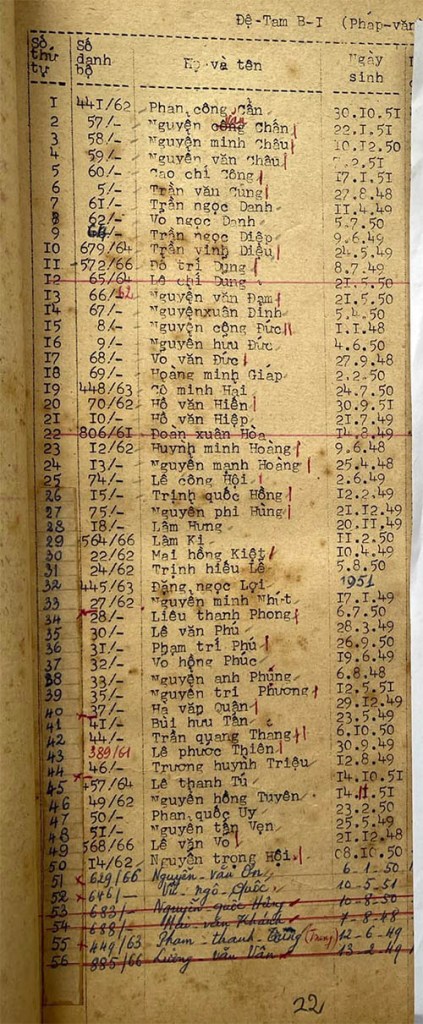 Đệ-Tam B-I (Pháp-văn
Số thứ tự Số danh bộ Họ và tên Ngày sinh
I 44I/62 Phan công Cần 30.IO.5I
2 57/- Nguyễn văn Chấn 22.I.5I
3 58/- Nguyễn minh Châu IO.I2.50
4 59/- Nguyễn văn Châu .2.5I
5 60/- Cao chí Công I7.I.5I
6 5/- Trần văn Cúng 27.8.48
7 6I/- Trần ngọc Danh II.4.49
8 62/- Vo ngọc Danh 5.7.50
9 Trần ngọc Diệp 9.6.49
IO 679/64 Trần vinh Diệu 24.5.49
II 572/66 Đỗ trí Dụng 8.7.49
I2 65/64 Lê chí Dung 2I.5.50
I3 66/62 Nguyễn văn Đạm 2I.5.50
I4 67/- Nguyễnxuân Đính 5.4.50
I5 8/- Nguyễn công Đức I.I.48
I6 9/- Nguyễn hưu Đức 4.6.50
I7 68/- Vo văn Đức 27.9.48
I8 69/- Hoàng minh Giáp 2.2.50
I9 448/63 Cô minh Hai 24.7.50
20 70/62 Hồ văn Hiền 30.9.5I
2I IO/- Hồ văn Hiệp 2I.7.49
22 806/6I Đoàn xuân Hòa I4.8.49
23 I2/62 Huỳnh minh Hoàng 9.6.48
24 I3/- Nguyễn mạnh Hoàng 25.4.48
25 74/- Lê công Hội 2.6.49
26 I5/- Trịnh quốc Hồng I2.2.49
27 75/- Nguyễn phi Hùng 2I.I2.49
28 I8/- Lâm Hưng 20.II.49
29 564/66 Lâm Ki II.2.50
30 22/62 Mai hồng Kiệt IO.4.49
3I 24/62 Trịnh hiếu Lễ 5.8.50
32 445/63 Đặng ngọc Lợi 1951
33 27/62 Nguyễn minh Nhựt I7.I.49
34 28/- Liêu thanh Phong 6.7.50
35 30/- Lê văn Phú 28.3.49
36 3I/- Phạm trí Phú 26.9.50
37 32/- Vo hồng Phúc I9.6.49
38 33/- Nguyễn anh Phụng 6.8.48
39 35/- Nguyễn tri Phương I2.5.5I
40 37/- Hạ văp Quận 29.I2.49
4I 4I/- Bùi hưu Tấn 23.5.49
42 44/- Trần quang Thang 6.IO.50
43 389/61 Lê phước Thiện 30.9.49
44 46/- Trương huỳnh Triệu I2.8.49
45 457/64 Lê thanh Tú I4.IO.5I
46 49/62 Nguyễn hồng Tuyên I4.11.5I
47 50/- Phan quốc Uy 23.2.50
48 5I/- Nguyễn tấn Vẹn 25.5.49
49 568/66 Lê văn Vo 2I.I2.48
50 I4/62 Nguyễn trọng Hội 08.IO.50
51 629/66 Nguyễn-văn Ơn 6-1-50
52 646/- Vũ-ngô-Quốc 10-5-51
53 683/- Nguyễn-quốc Hùng 10-8-50
54 688/- Mai-văn Khánh 7-8-48
55 449/63 Phạm-thanh-Trung (Trung) 12-6-49
56 885/66 Lương-văn Vân 13-2-49
22